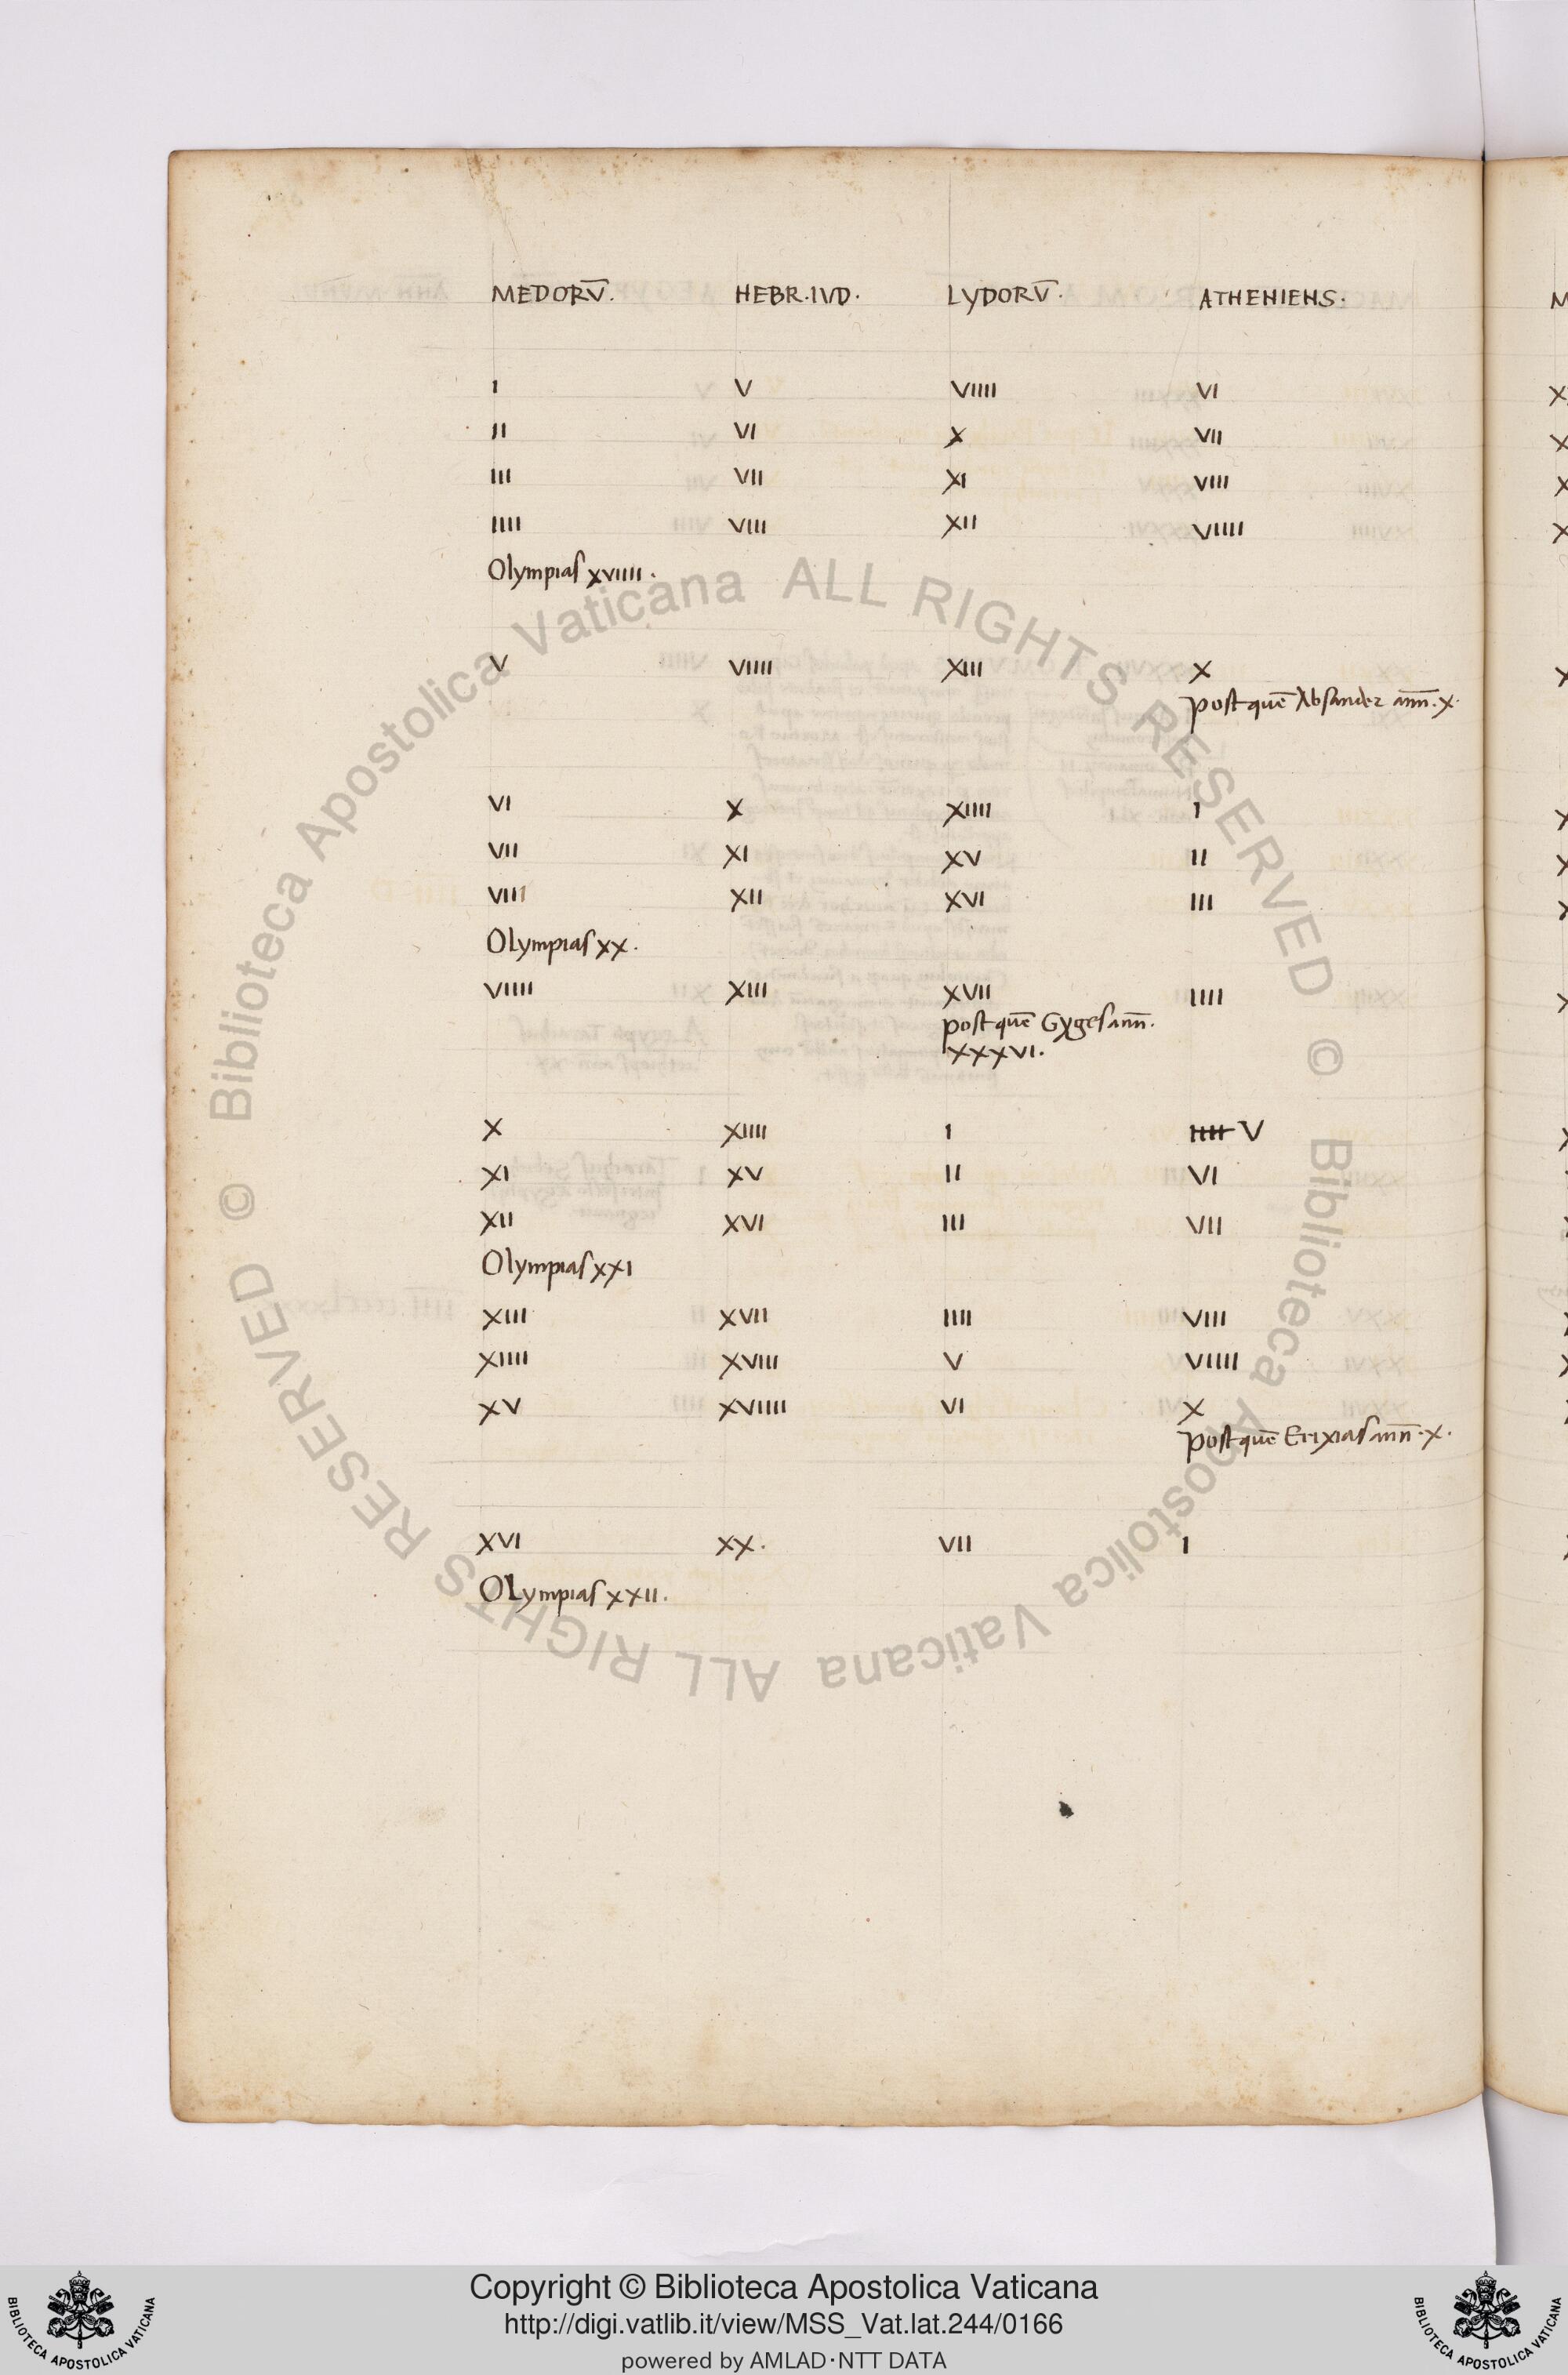 MEDORV̄. HEBR.IVD. LYDORV̄. ATHENIENS.
I V VIIII VI
II VI X VII
III VII XI VIII
IIII VIII XII VIIII
Olympias XVIIII.
V VIIII XIII X
post quē Absander ann̄. X.
VI X XIIII I
VII XI XV II
VIII XII XVI III
Olympias XX.
VIIII XIII XVII IIII
post quē Gyges ann̄.
XXXVI.
X XIIII I IIII V
XI XV II VI
XII XVI III VII
Olympias XXI
XIII XVII IIII VIII
XIIII XVIII V VIIII
XV XVIIII VI X
post quē Erixias ann̄. X.
XVI XX. VII I
Olympias XXII.
© Biblioteca Apostolica Vaticana ALL RIGHTS RESERVED
© Biblioteca Apostolica Vaticana ALL RIGHTS RESERVED
Copyright © Biblioteca Apostolica Vaticana
http://digi.vatlib.it/view/MSS_Vat.lat.244/0166
powered by AMLAD·NTT DATA
BIBLIOTECA APOSTOLICA VATICANA
BIBLIOTECA APOSTOLICA VATICANA